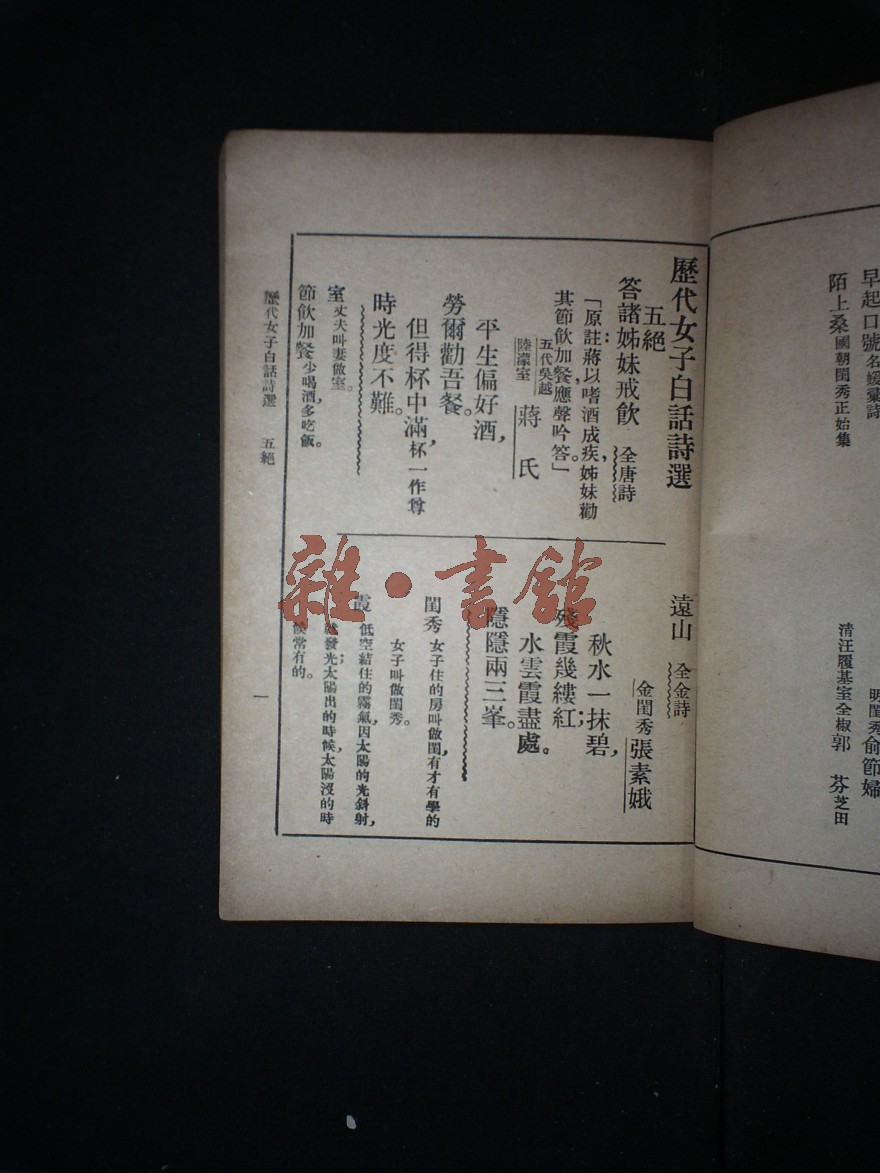 早起口號 名媛彙詩
明閨秀 俞節婦
陌上桑 國朝閨秀正始集
清汪履基室全椒 郭 芬 芝田
歷代女子白話詩選
五絕
答諸姊妹戒飲 全唐詩
「原註:蔣以嗜酒成疾,姊妹勸
其節飲加餐,應聲吟答。」
五代吳越
陸濛室 蔣 氏
平生偏好酒,
勞爾勸吾餐。
但得杯中滿,杯一作尊
時光度不難。
室 丈夫叫妻做室。
節飲加餐 少喝酒,多吃飯。
遠山 全金詩
金閨秀 張素娥
秋水一抹碧,
殘霞幾縷紅;
水雲霞盡處。
隱隱兩三峯。
閨秀 女子住的房叫做閨,有才有學的
女子叫做閨秀。
霞 低空結住的霧氣,因太陽的光斜射,
就發光;太陽出的時候,太陽沒的時
候常有的。
歷代女子白話詩選 五絕
一
雜·書館